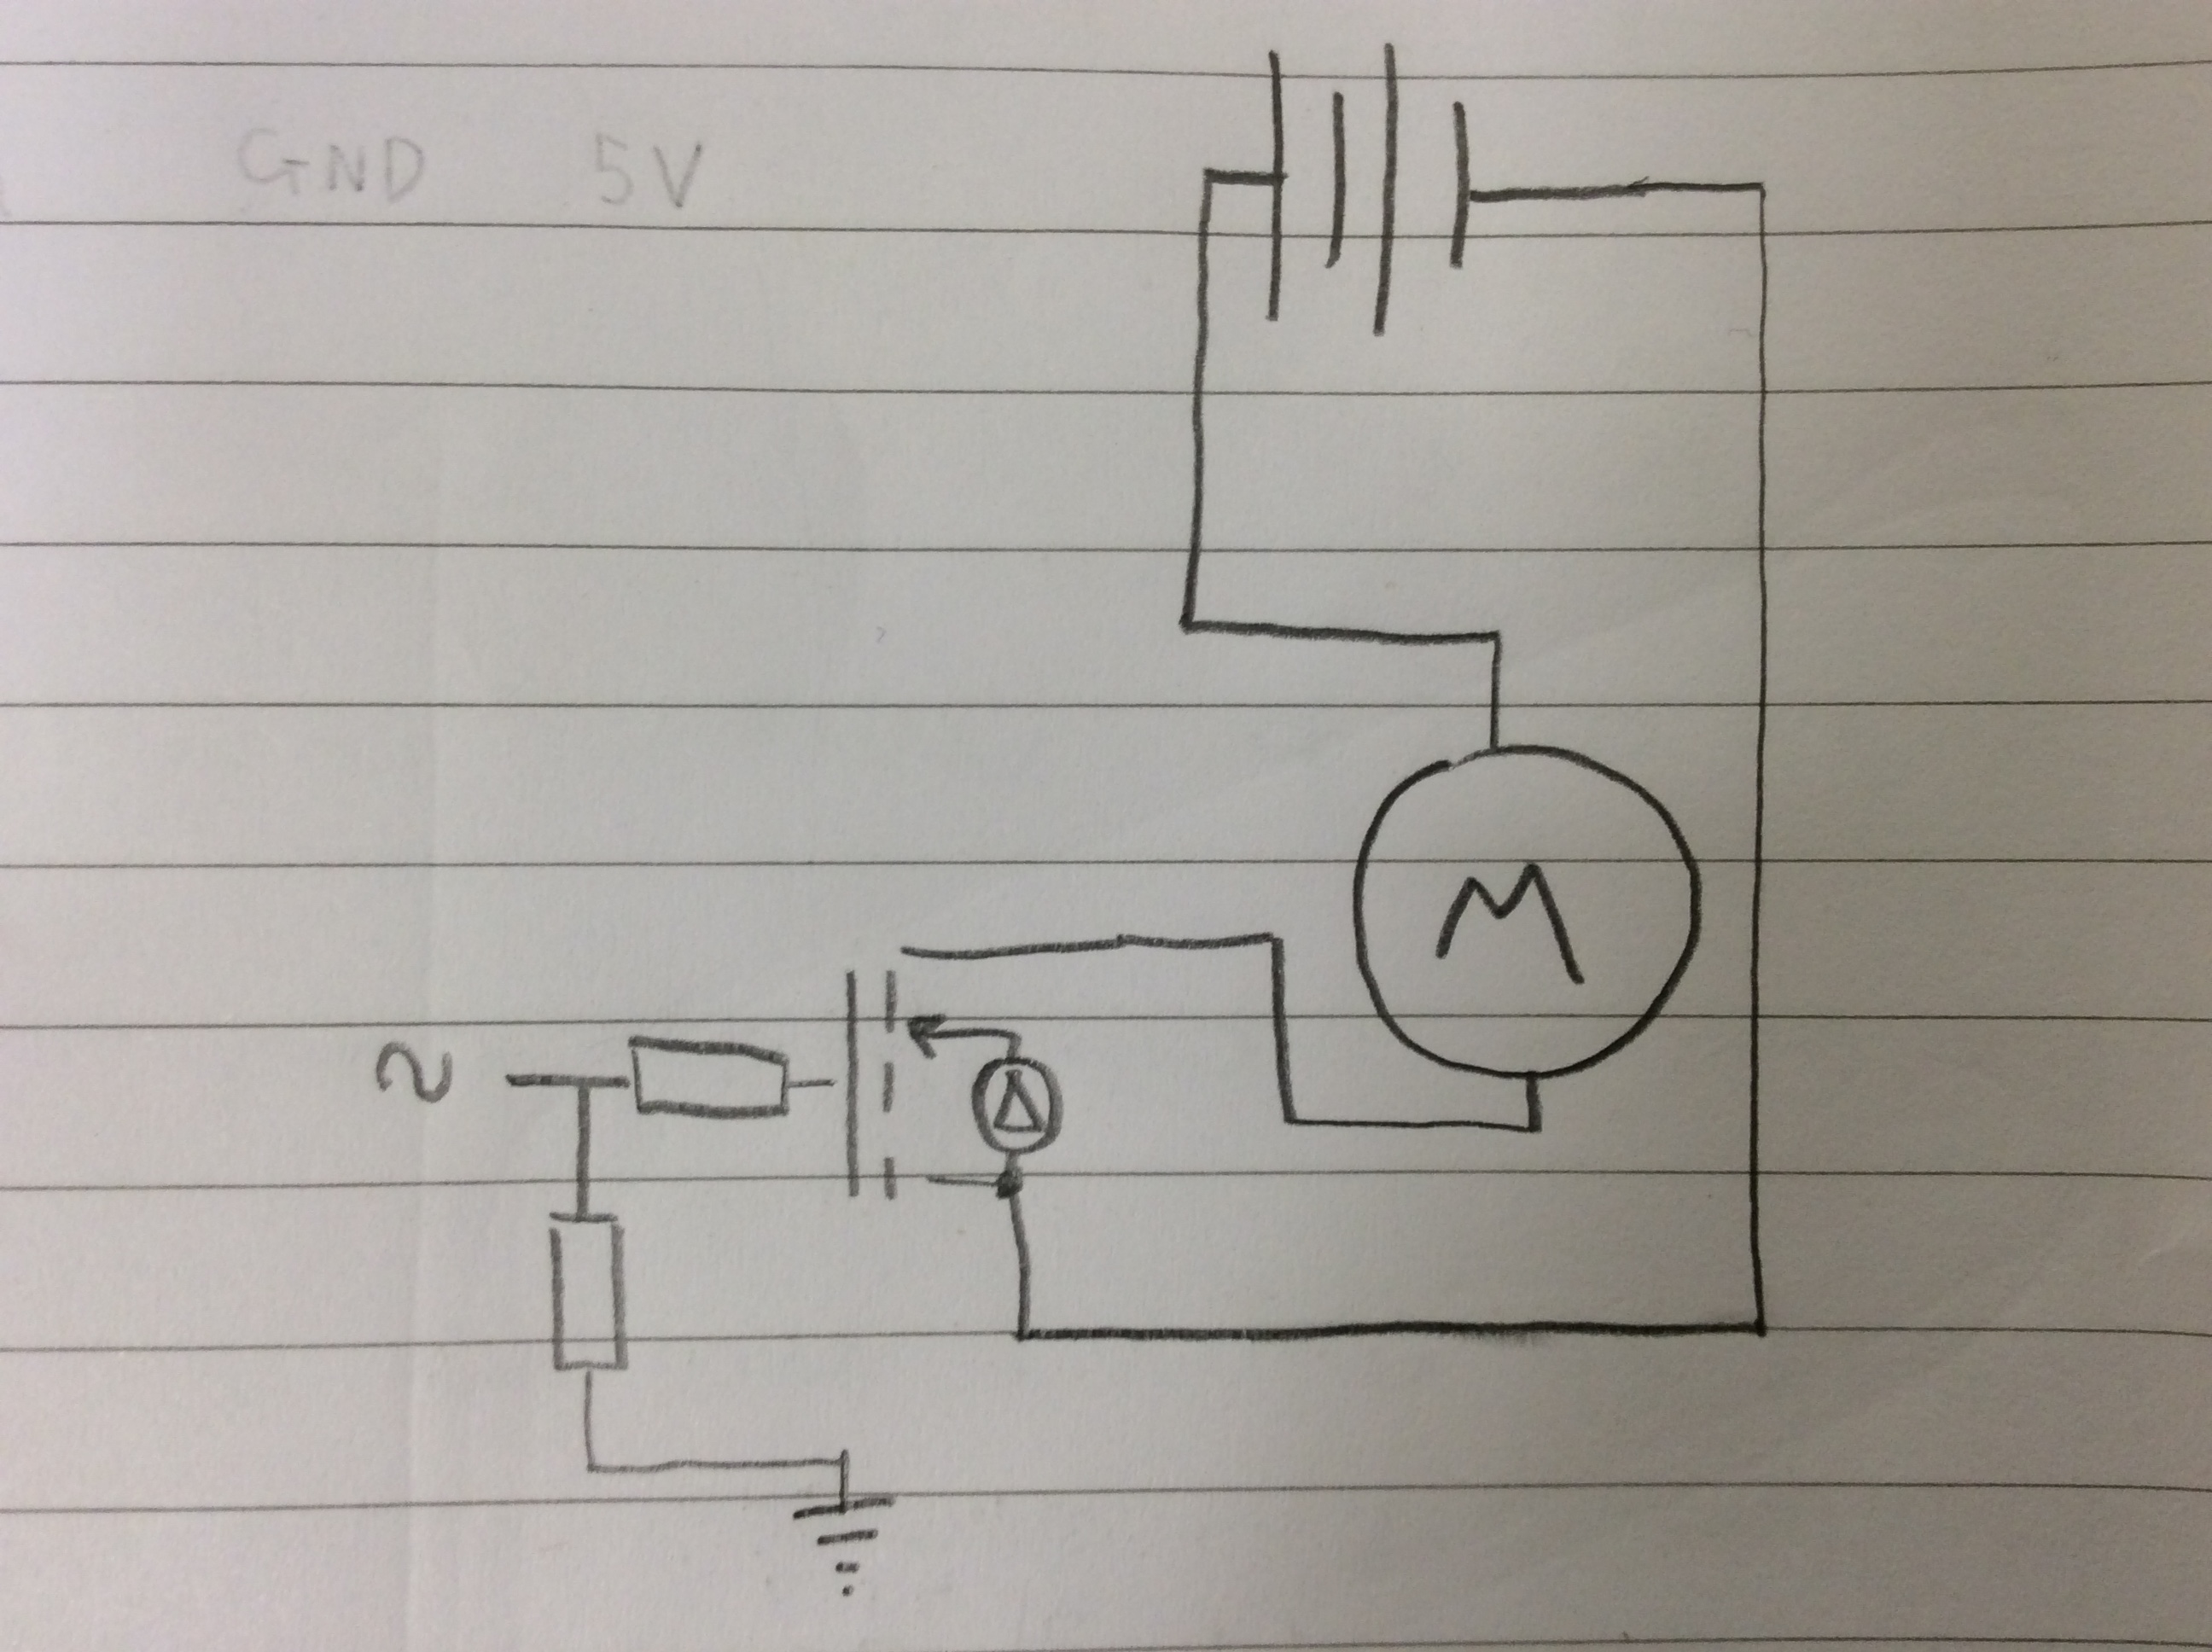 GND 5V
M
2